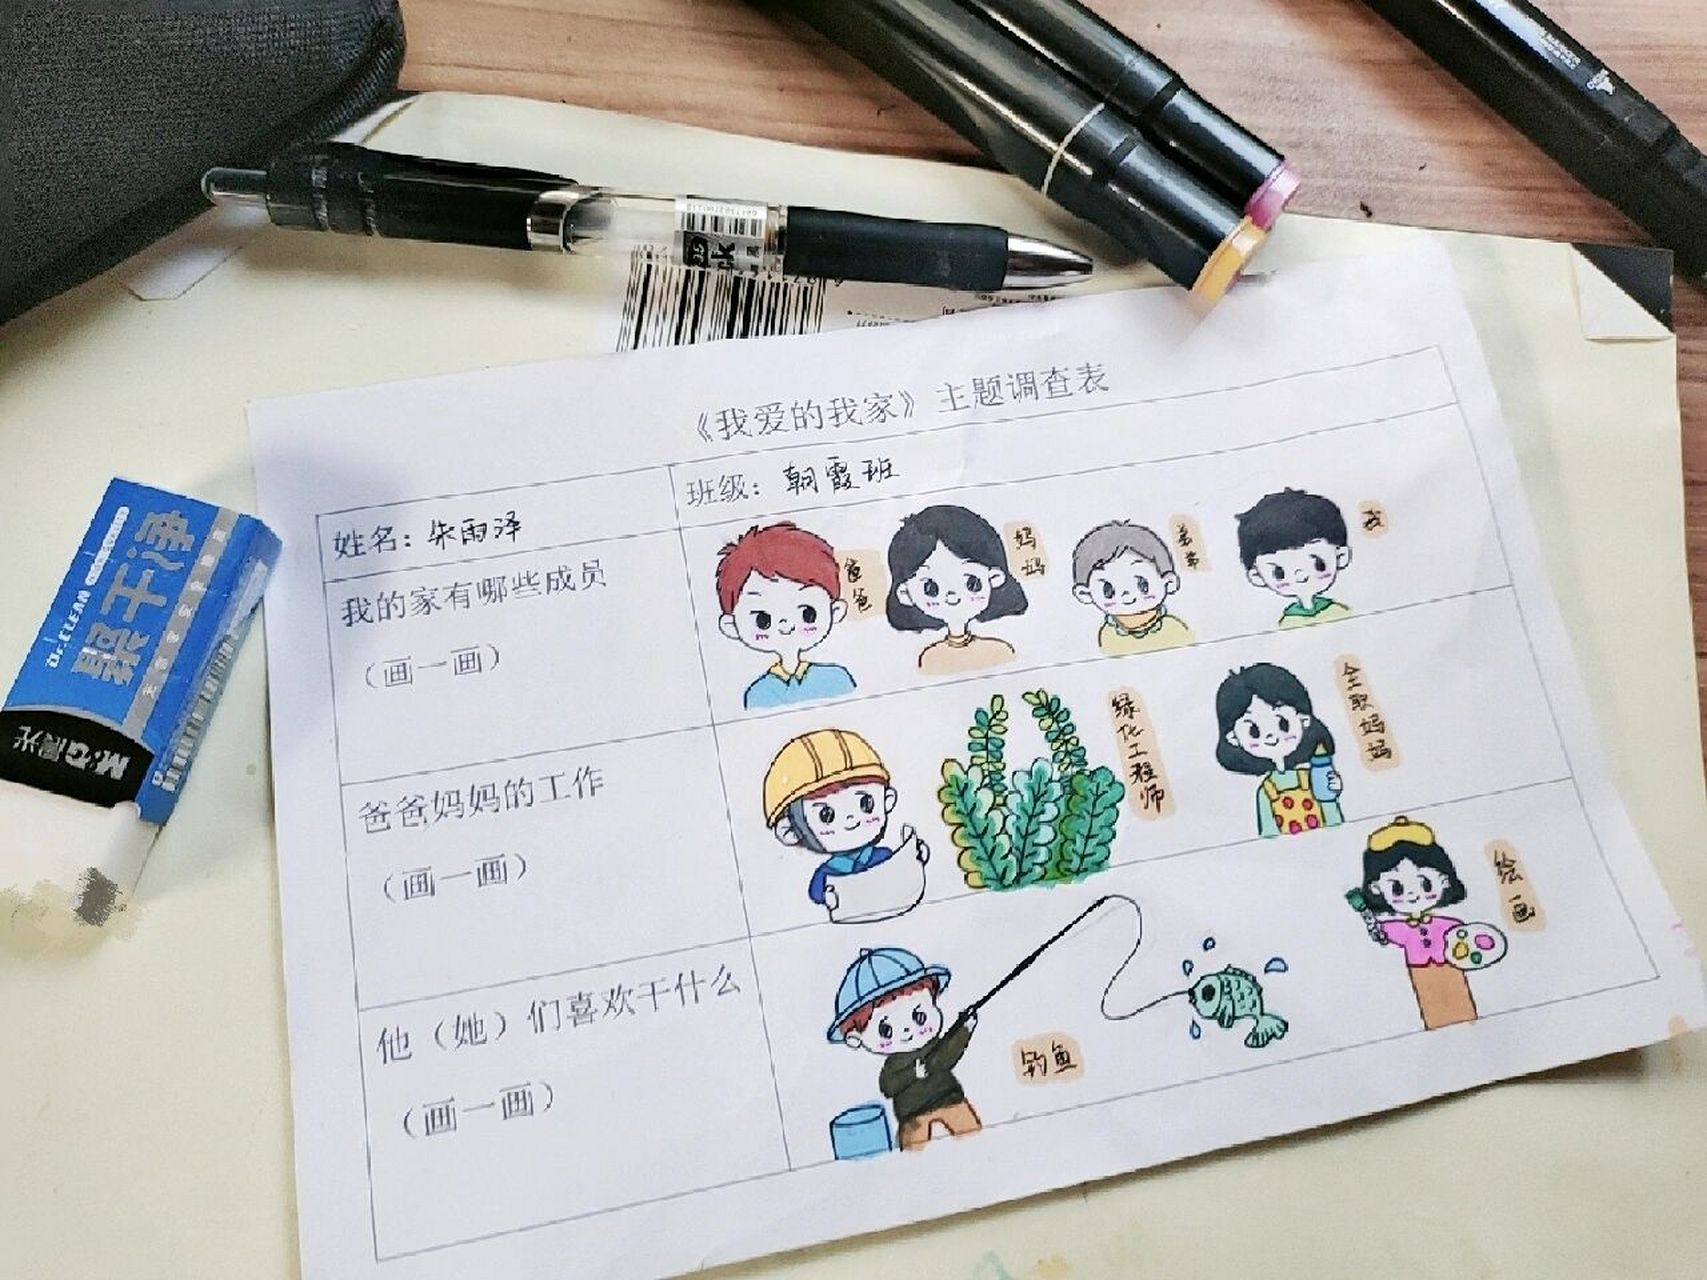 《我爱的我家》主题调查表
姓名：朱雨泽
班级：朝霞班
我的家有哪些成员
（画一画）
爸爸
妈妈
弟弟
我
爸爸妈妈的工作
（画一画）
绿化工程师
全职妈妈
他（她）们喜欢干什么
（画一画）
钓鱼
绘画
聚干净
M&G晨光